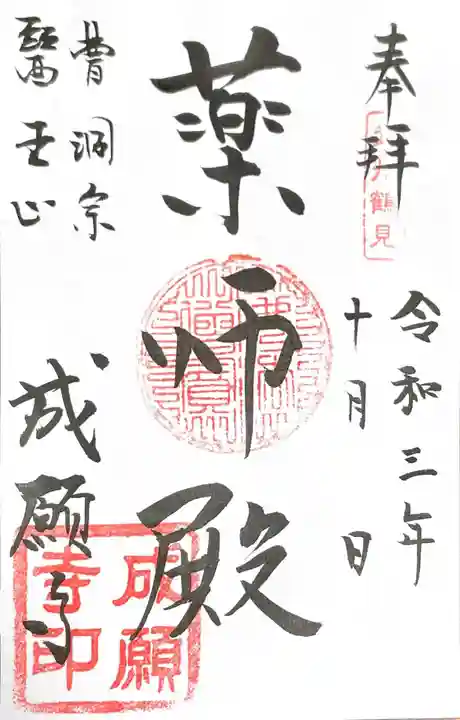 奉拝
鶴見
令和三年
十月 日
薬師殿
曹洞宗
醫王山
成願寺
成願
寺印